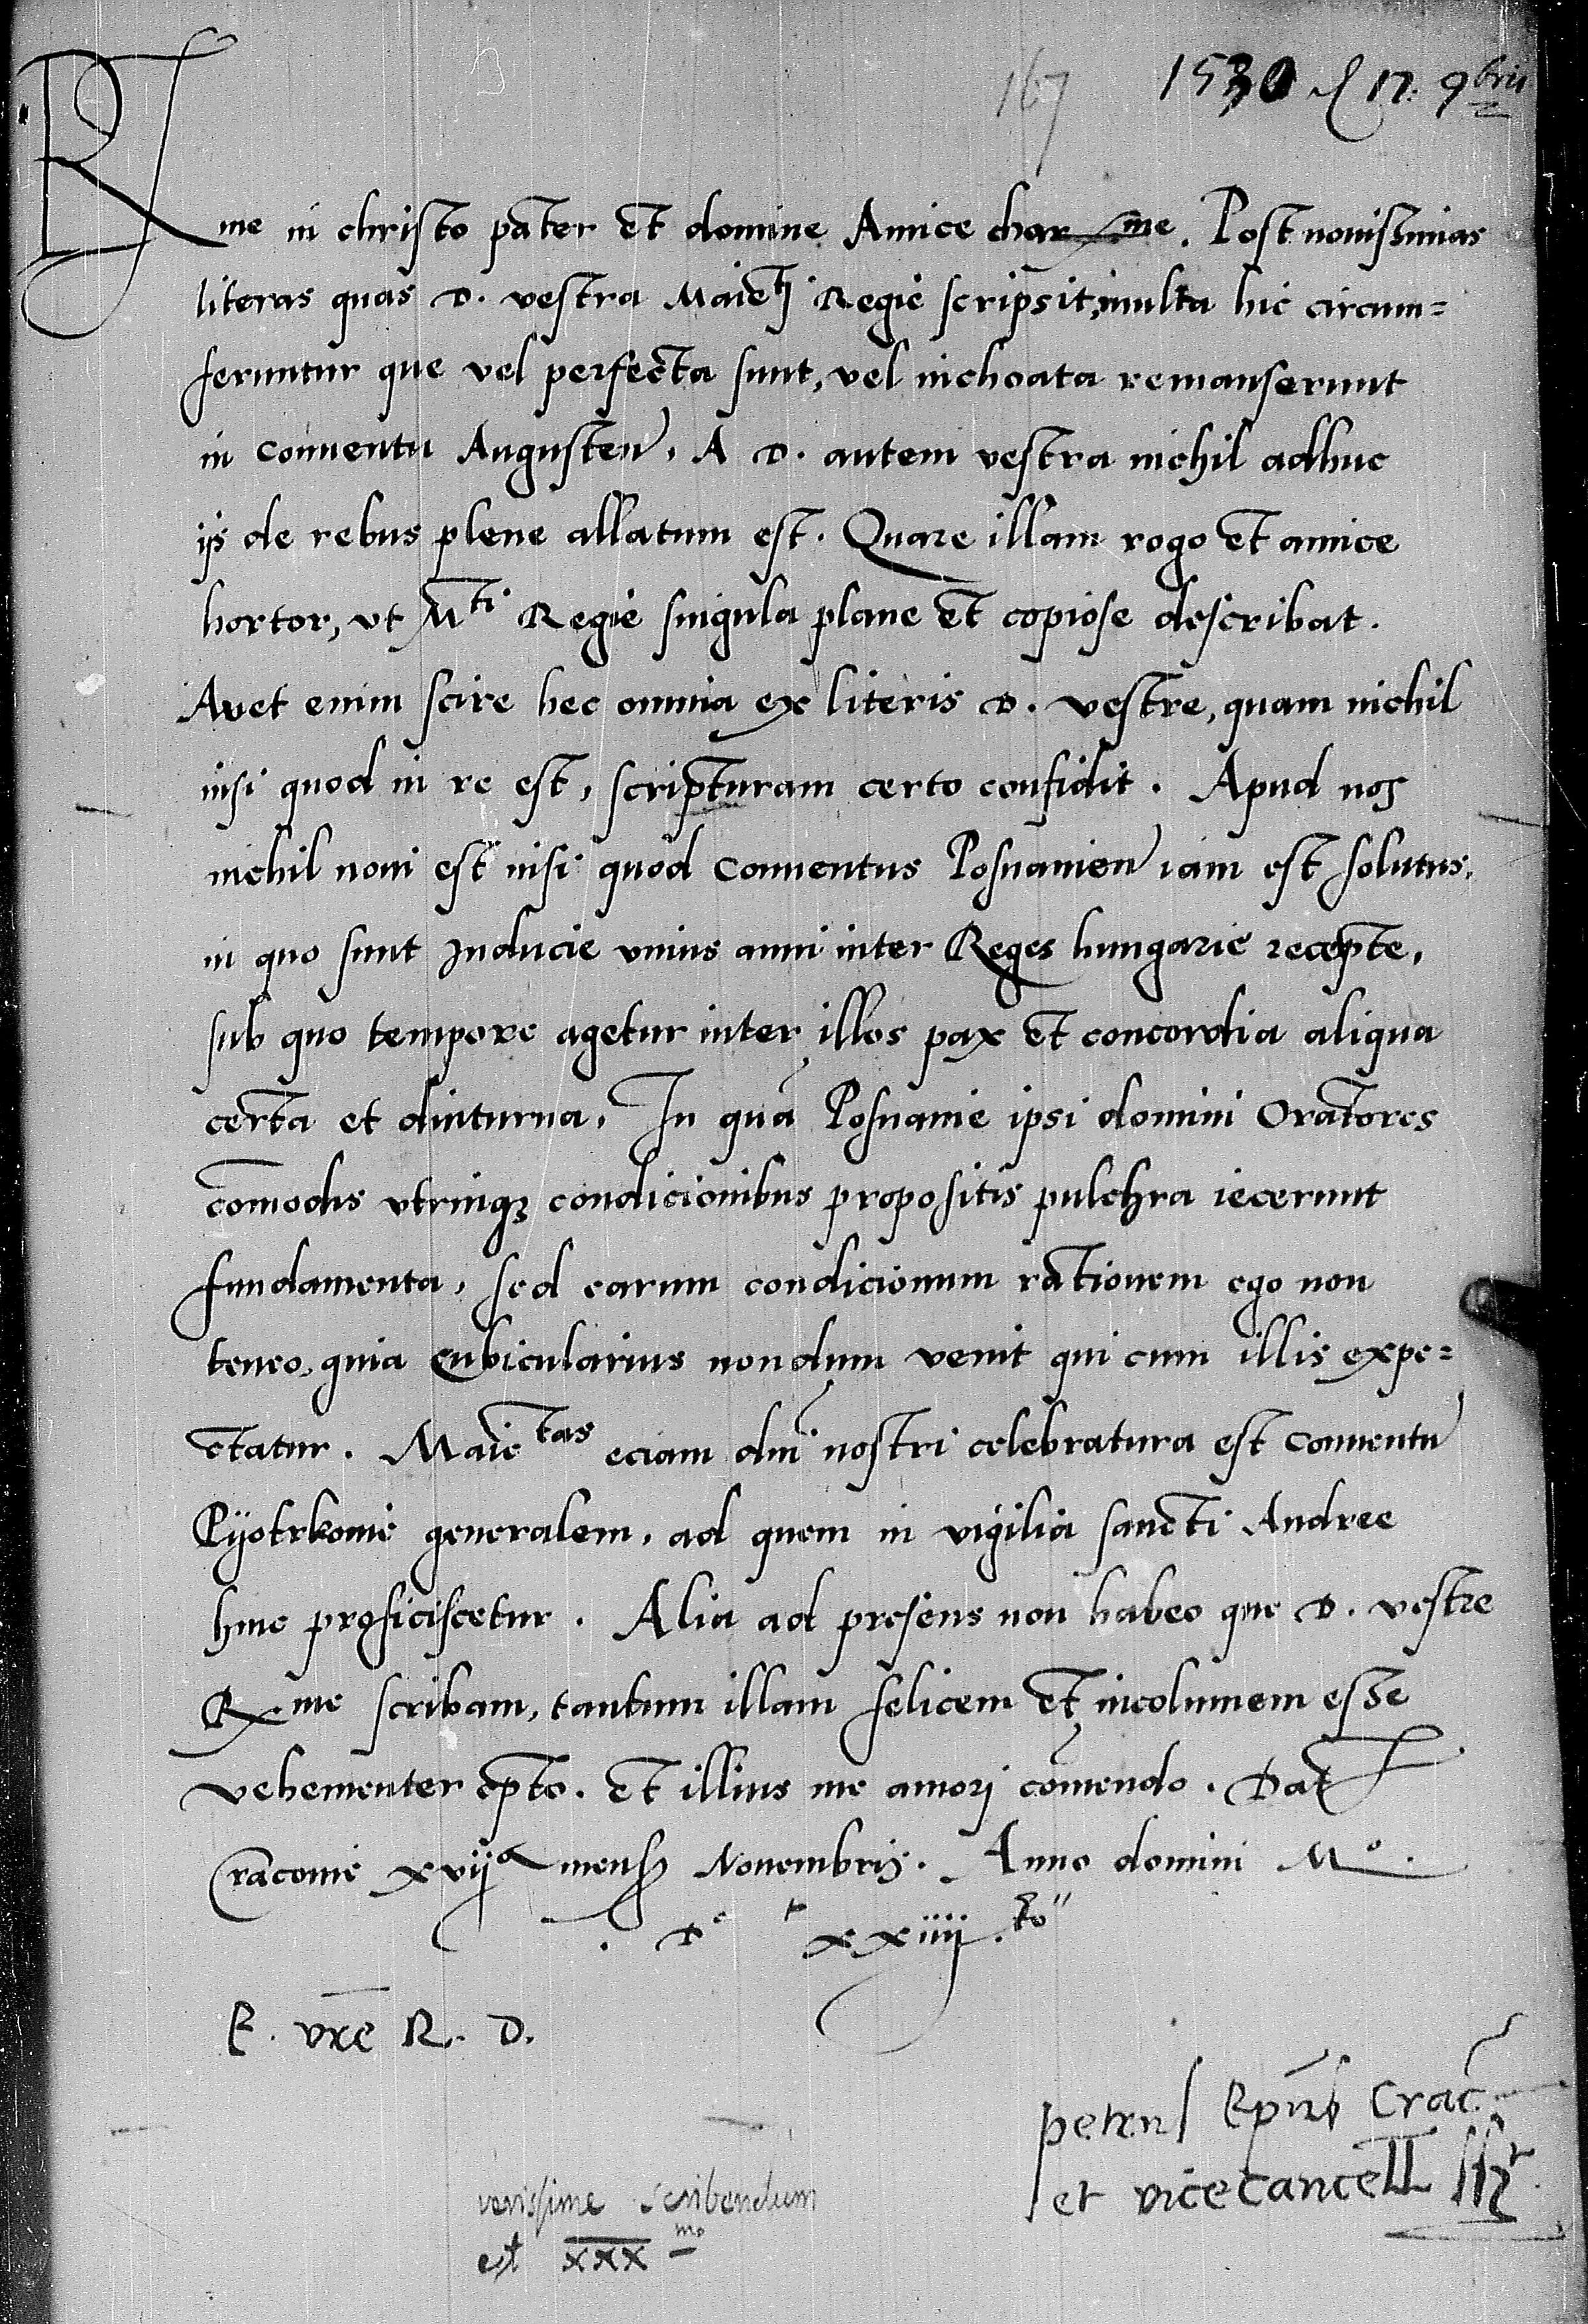 167
1530 d 17. 9bris
Rme in christo pater et domine Amice charme. Post nouissimas
literas quas D. vestra Maietj Regie scripsit, multa hic circum=
feruntur que vel perfecta sunt, vel inchoata remanserunt
in conuentu Augusten̄. A D. autem vestra nichil adhuc
ijs de rebus plene allatum est. Quare illam rogo et amice
hortor, vt Mti Regie singula plane et copiose describat.
Auet enim scire hec omnia ex literis D. vestre, quam nichil
nisi quod in re est, scripturam certo confidit. Apud nos
nichil noui est nisi quod Conuentus Posnanien̄ iam est solutus,
in quo sunt Inducie vnius anni inter Reges hungarie recepte,
sub quo tempore agetur inter illos pax et concordia aliqua
certa et diuturna. In qua Posnanie ipsi domini Oratores
com̄odis vtrinqꝫ condicionibus propositis pulchra iecerunt
fundamenta, sed earum condicionum rationem ego non
teneo, quia Cubicularius nondum venit qui cum illis expe=
ctatur. Maietas eciam dnī nostri celebratura est conuentū
Pyotrkouie generalem, ad quem in vigilia sancti Andree
hinc proficiscetur. Alia ad presens non habeo que D. vestre
Rme scribam, tantum illam felicem et incolumem esse
vehementer opto. Et illius me amori com̄endo. Dat
Cracouie xvija mens Nouembris. Anno domini Mo.
Do xxiiij.to
E. vr̄e R. D.
petrus Ep̄us Crac̄
et vicecancell
verissime scribendum
est xxxmo